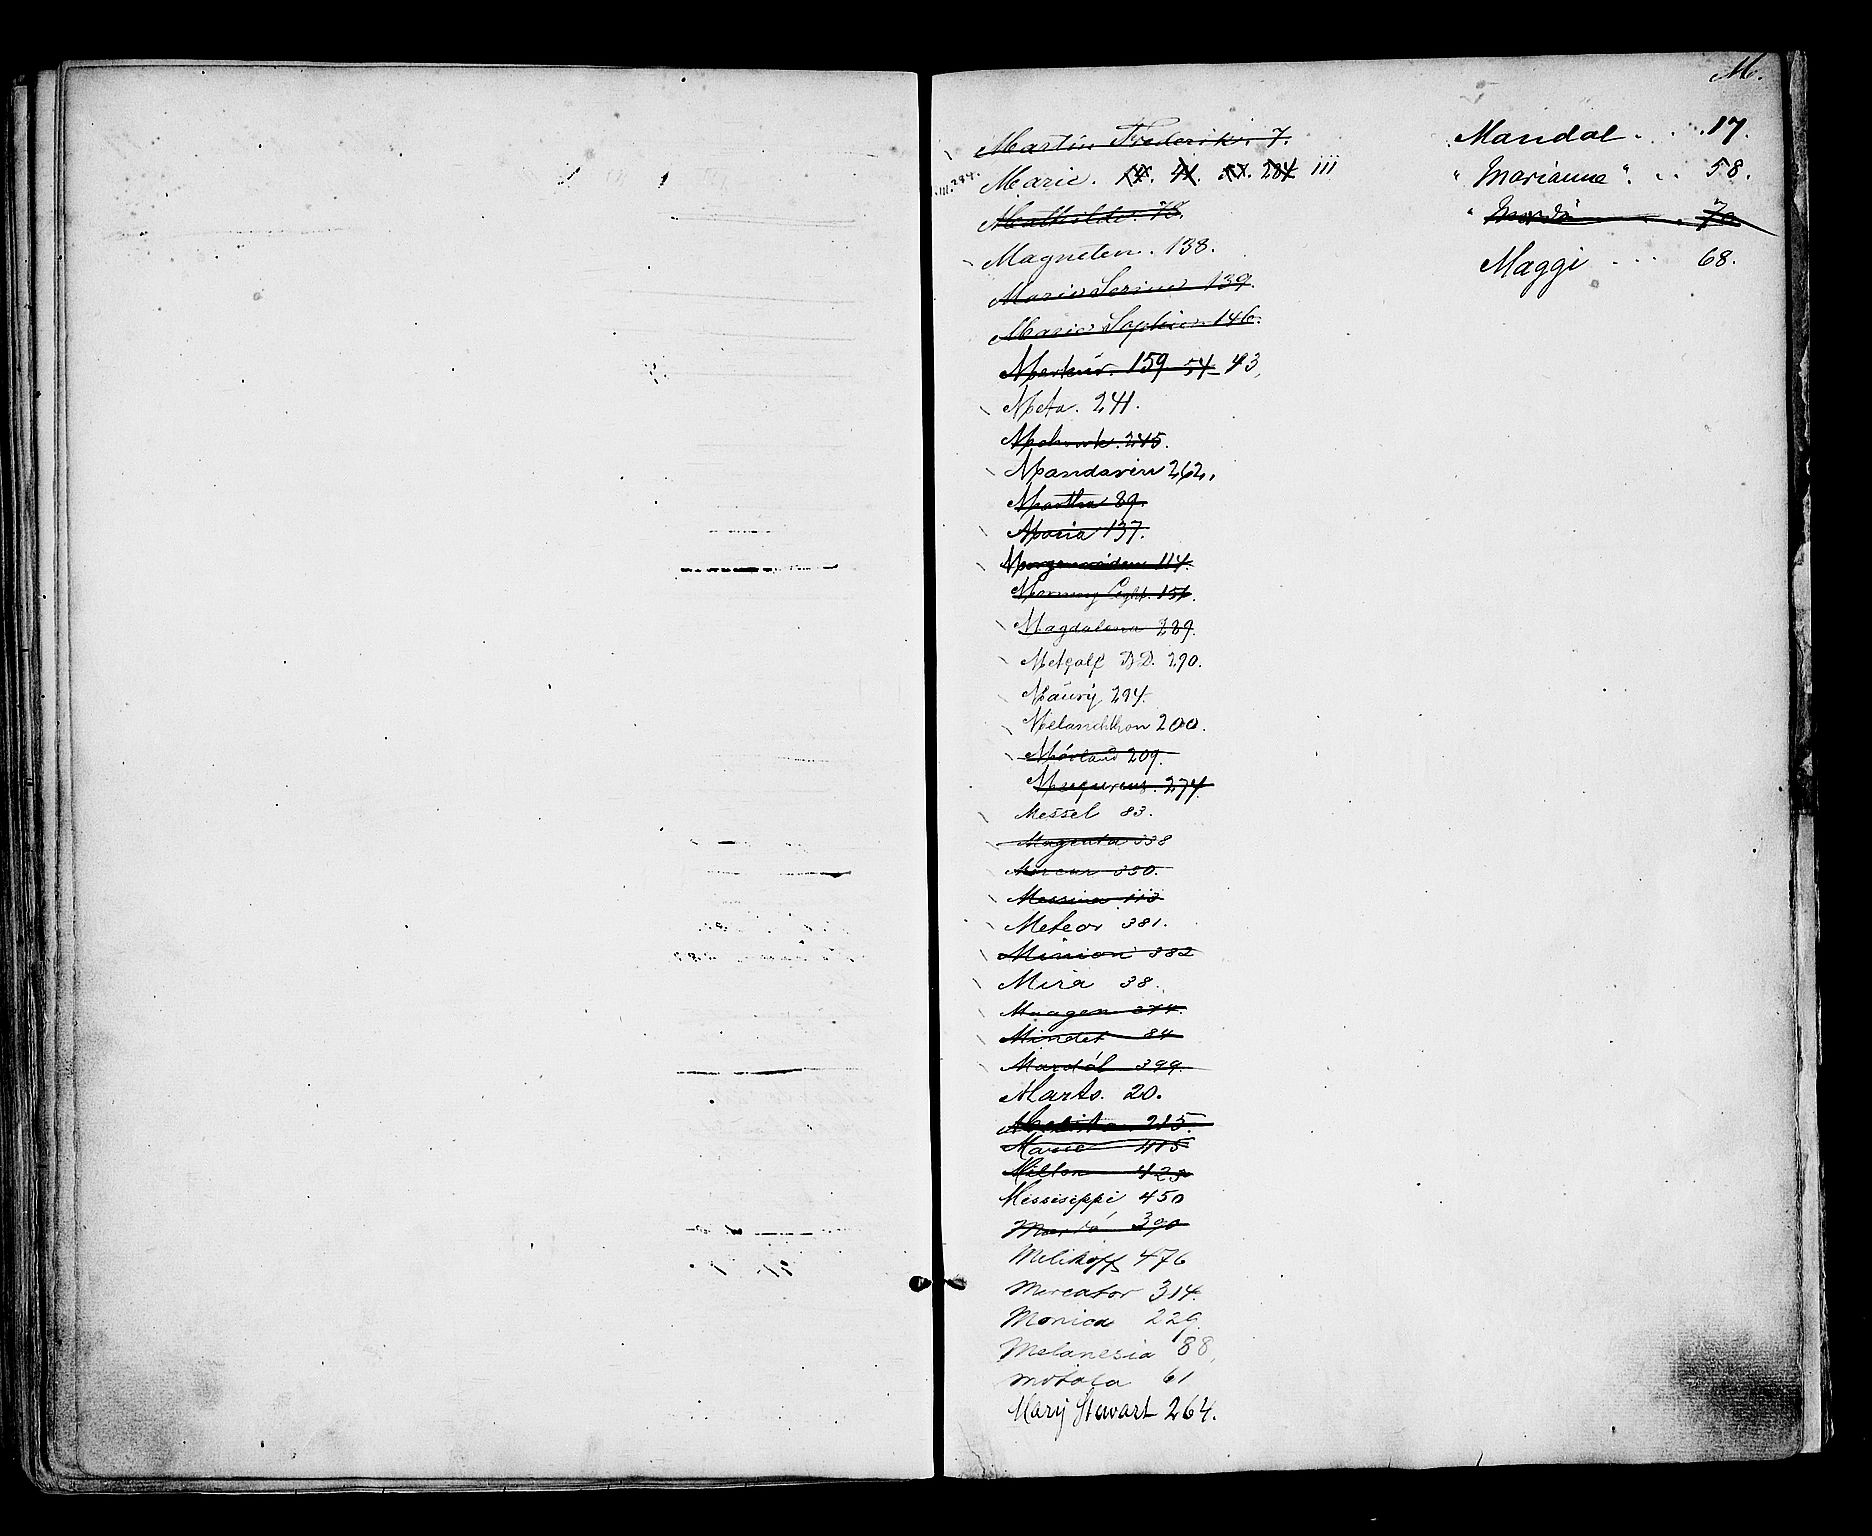 M.
Martin Frederik. 7.
Marie. 14. 41. 284 111
Mathilde. 78.
Magneten. 138.
Marie Serine 139.
Marie Sophie 146.
Merkur. 159 54 43.
Meta. 241.
Mohawk. 245.
Mandarin 262.
Martha 89.
Maria 137.
114.
Morning Light. 151.
Magdalena 289.
Metcalf D.D. 290.
Maury 294.
Melanchthon 200.
Mörland 209.
274.
Messel 83.
Magenta 338
Mercur 350.
Messina 113
Meteor 381.
Minion 382
Mira 38.
Maagen 374.
Mindet 84
Mardöl 399.
Marts. 20.
215.
Marie 415
Milton 423
Missisippi 450
Mardö 390
Melikoff 476
Mercator 314.
Monica 229.
Melanesia 88,
Motala 61
Mary Stewart 264.
Mandal . . . 17.
"Marianne". . . 58.
Mardö . . 70
Maggi . . . 68.